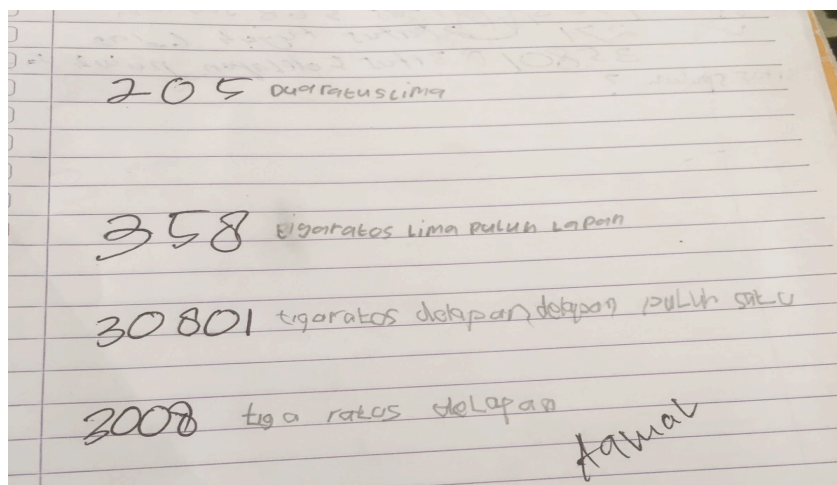 205 Duaratuslima
358 tigaratos Lima puluh Lapan
30801 tigaratos delapan delapan puluh satu
3008 tiga ratos delapan